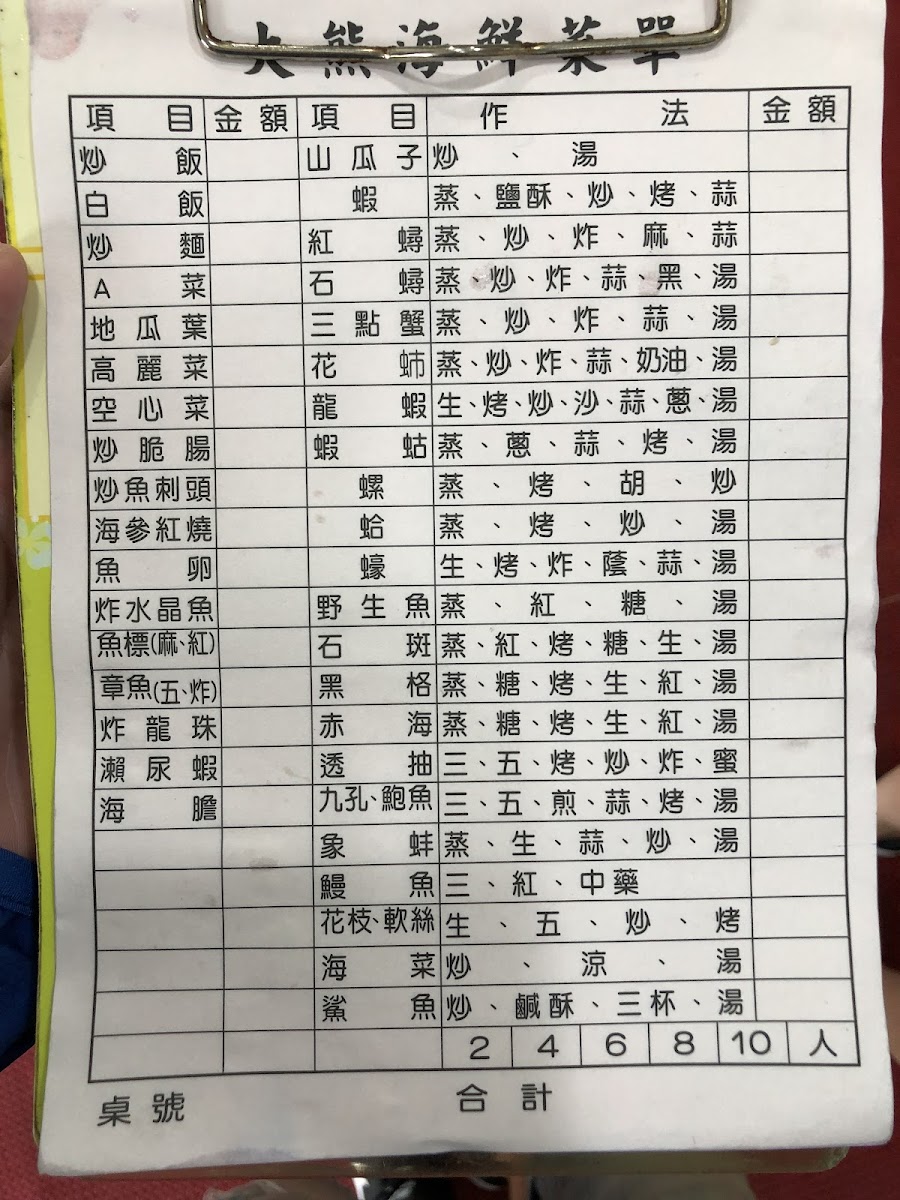 大熊海鮮菜單
項目 金額 項目 作法 金額
炒飯 山瓜子 炒、湯
白飯 蝦 蒸、鹽酥、炒、烤、蒜
炒麵 紅蟳 蒸、炒、炸、麻、蒜
A菜 石蟳 蒸、炒、炸、蒜、黑、湯
地瓜葉 三點蟹 蒸、炒、炸、蒜、湯
高麗菜 花蛳 蒸、炒、炸、蒜、奶油、湯
空心菜 龍蝦 生、烤、炒、沙、蒜、蔥、湯
炒脆腸 蝦蛄 蒸、蔥、蒜、烤、湯
炒魚刺頭 螺 蒸、烤、胡、炒
海參紅燒 蛤 蒸、烤、炒、湯
魚卵 蠔 生、烤、炸、蔭、蒜、湯
炸水晶魚 野生魚 蒸、紅、糖、湯
魚標(麻、紅) 石斑 蒸、紅、烤、糖、生、湯
章魚(五、炸) 黑格 蒸、糖、烤、生、紅、湯
炸龍珠 赤海 蒸、糖、烤、生、紅、湯
瀨尿蝦 透抽 三、五、烤、炒、炸、蜜
海膽 九孔、鮑魚 三、五、煎、蒜、烤、湯
象蚌 蒸、生、蒜、炒、湯
鰻魚 三、紅、中藥
花枝、軟絲 生、五、炒、烤
海菜 炒、涼、湯
鯊魚 炒、鹹酥、三杯、湯
2 4 6 8 10 人
桌號 合計